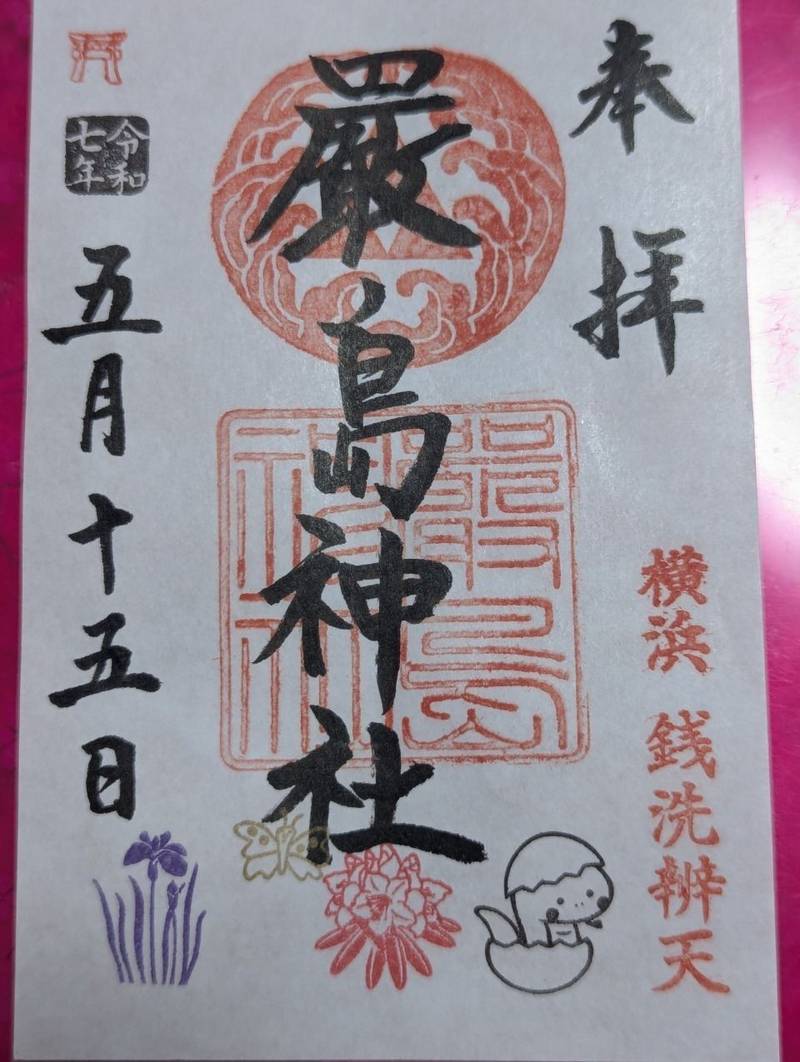 奉拝
横浜 銭洗辨天
嚴島神社
嚴島
神社
令和
七年
五月十五日